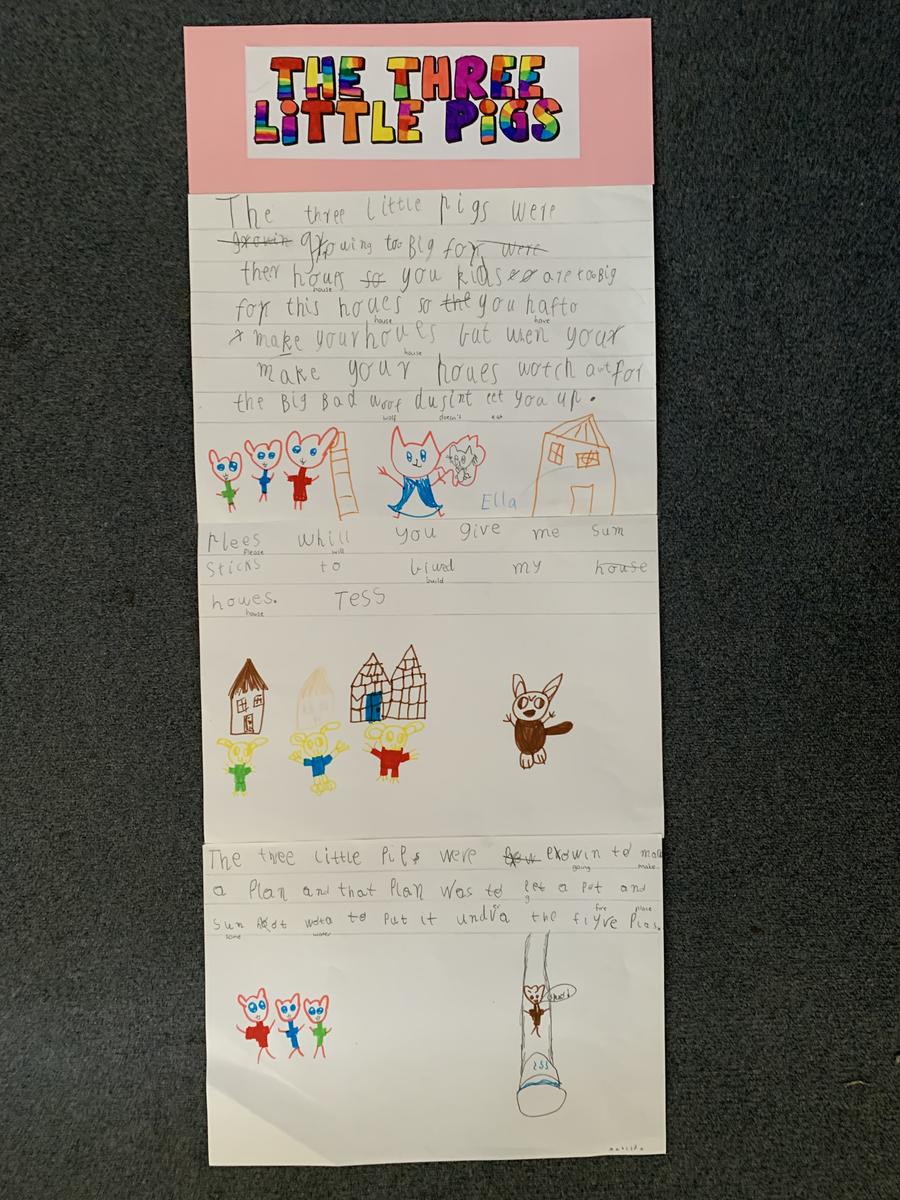 THE THREE
LiTTLE PiGS
The three little pigs were
growin growing too Big for were
ther houes so you kids are too Big
house
for this houes so the you hafto
house have
make your houes but wen your
house
make your houes wotch out for
the BIg Bad woof dusint eet you up.
wolf doesn't eat
Ella
Plees whill you give me sum
Please will
sticks to biued my house
build
howes. Tess
house
The three Little Pigs were to mak
going make
a Plan and that Plan was to get a Pot and
g
sum hot wota to Put it undia the fiyre Plas.
some water er fire place
matilda